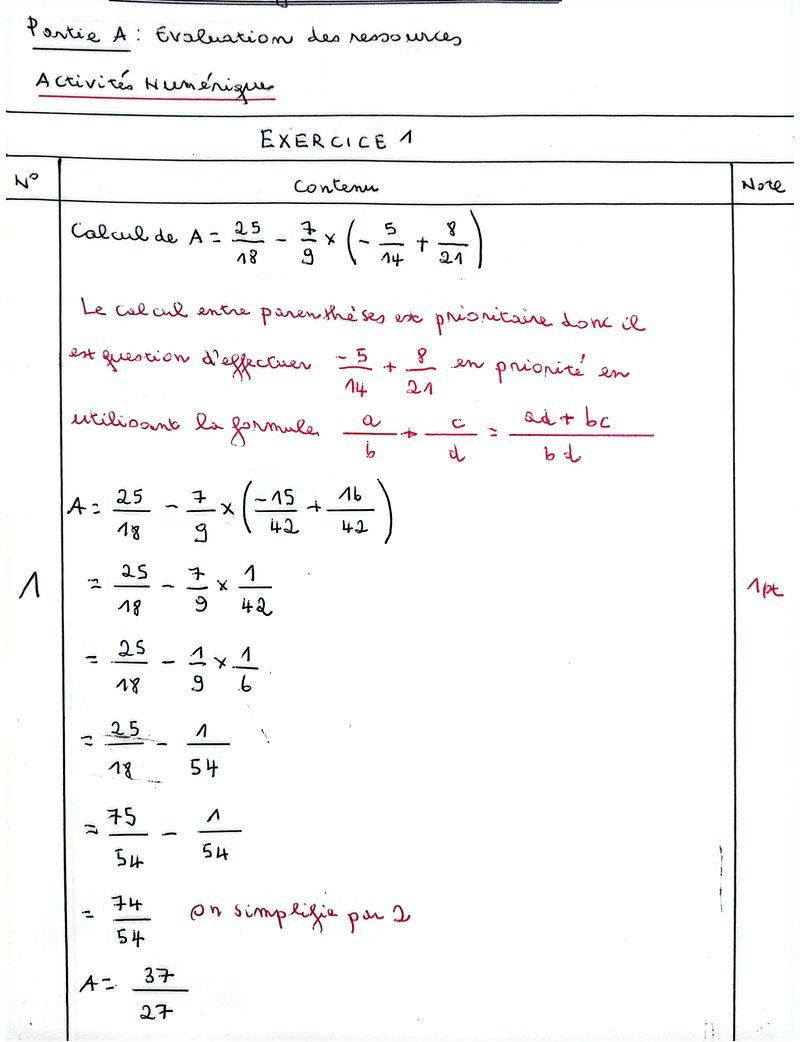 Partie A : Evaluation des ressources
Activités Numériques
EXERCICE 1
N° Contenu Note
Calcul de A = 25/18 - 7/9 × (- 5/14 + 8/21)
Le calcul entre parenthèses est prioritaire donc il
est question d'effectuer -5/14 + 8/21 en priorité en
utilisant la formule a/b + c/d = (ad + bc)/bd
A = 25/18 - 7/9 × (-15/42 + 16/42)
1 = 25/18 - 7/9 × 1/42 1pt
= 25/18 - 1/9 × 1/6
= 25/18 - 1/54
= 75/54 - 1/54
= 74/54 on simplifie par 2
A = 37/27